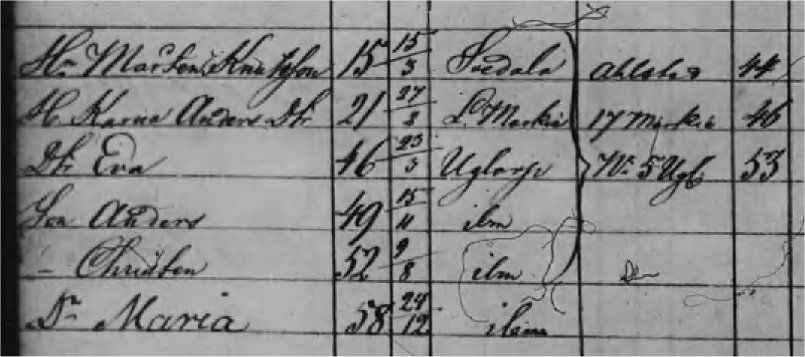 Hn Mårten Knutsson 15 15/3 Svedala Ahlstad 44
H. Karna Anders Dtr 21 27/2 L. Markie 17 Markie 46
Dtr Eva 46 23/3 Uglarp No 5 Ugl. 53
Son Anders 49 15/11 ilm
" Christen 52 9/8 ilm
Dtr Maria 58 24/12 ilm